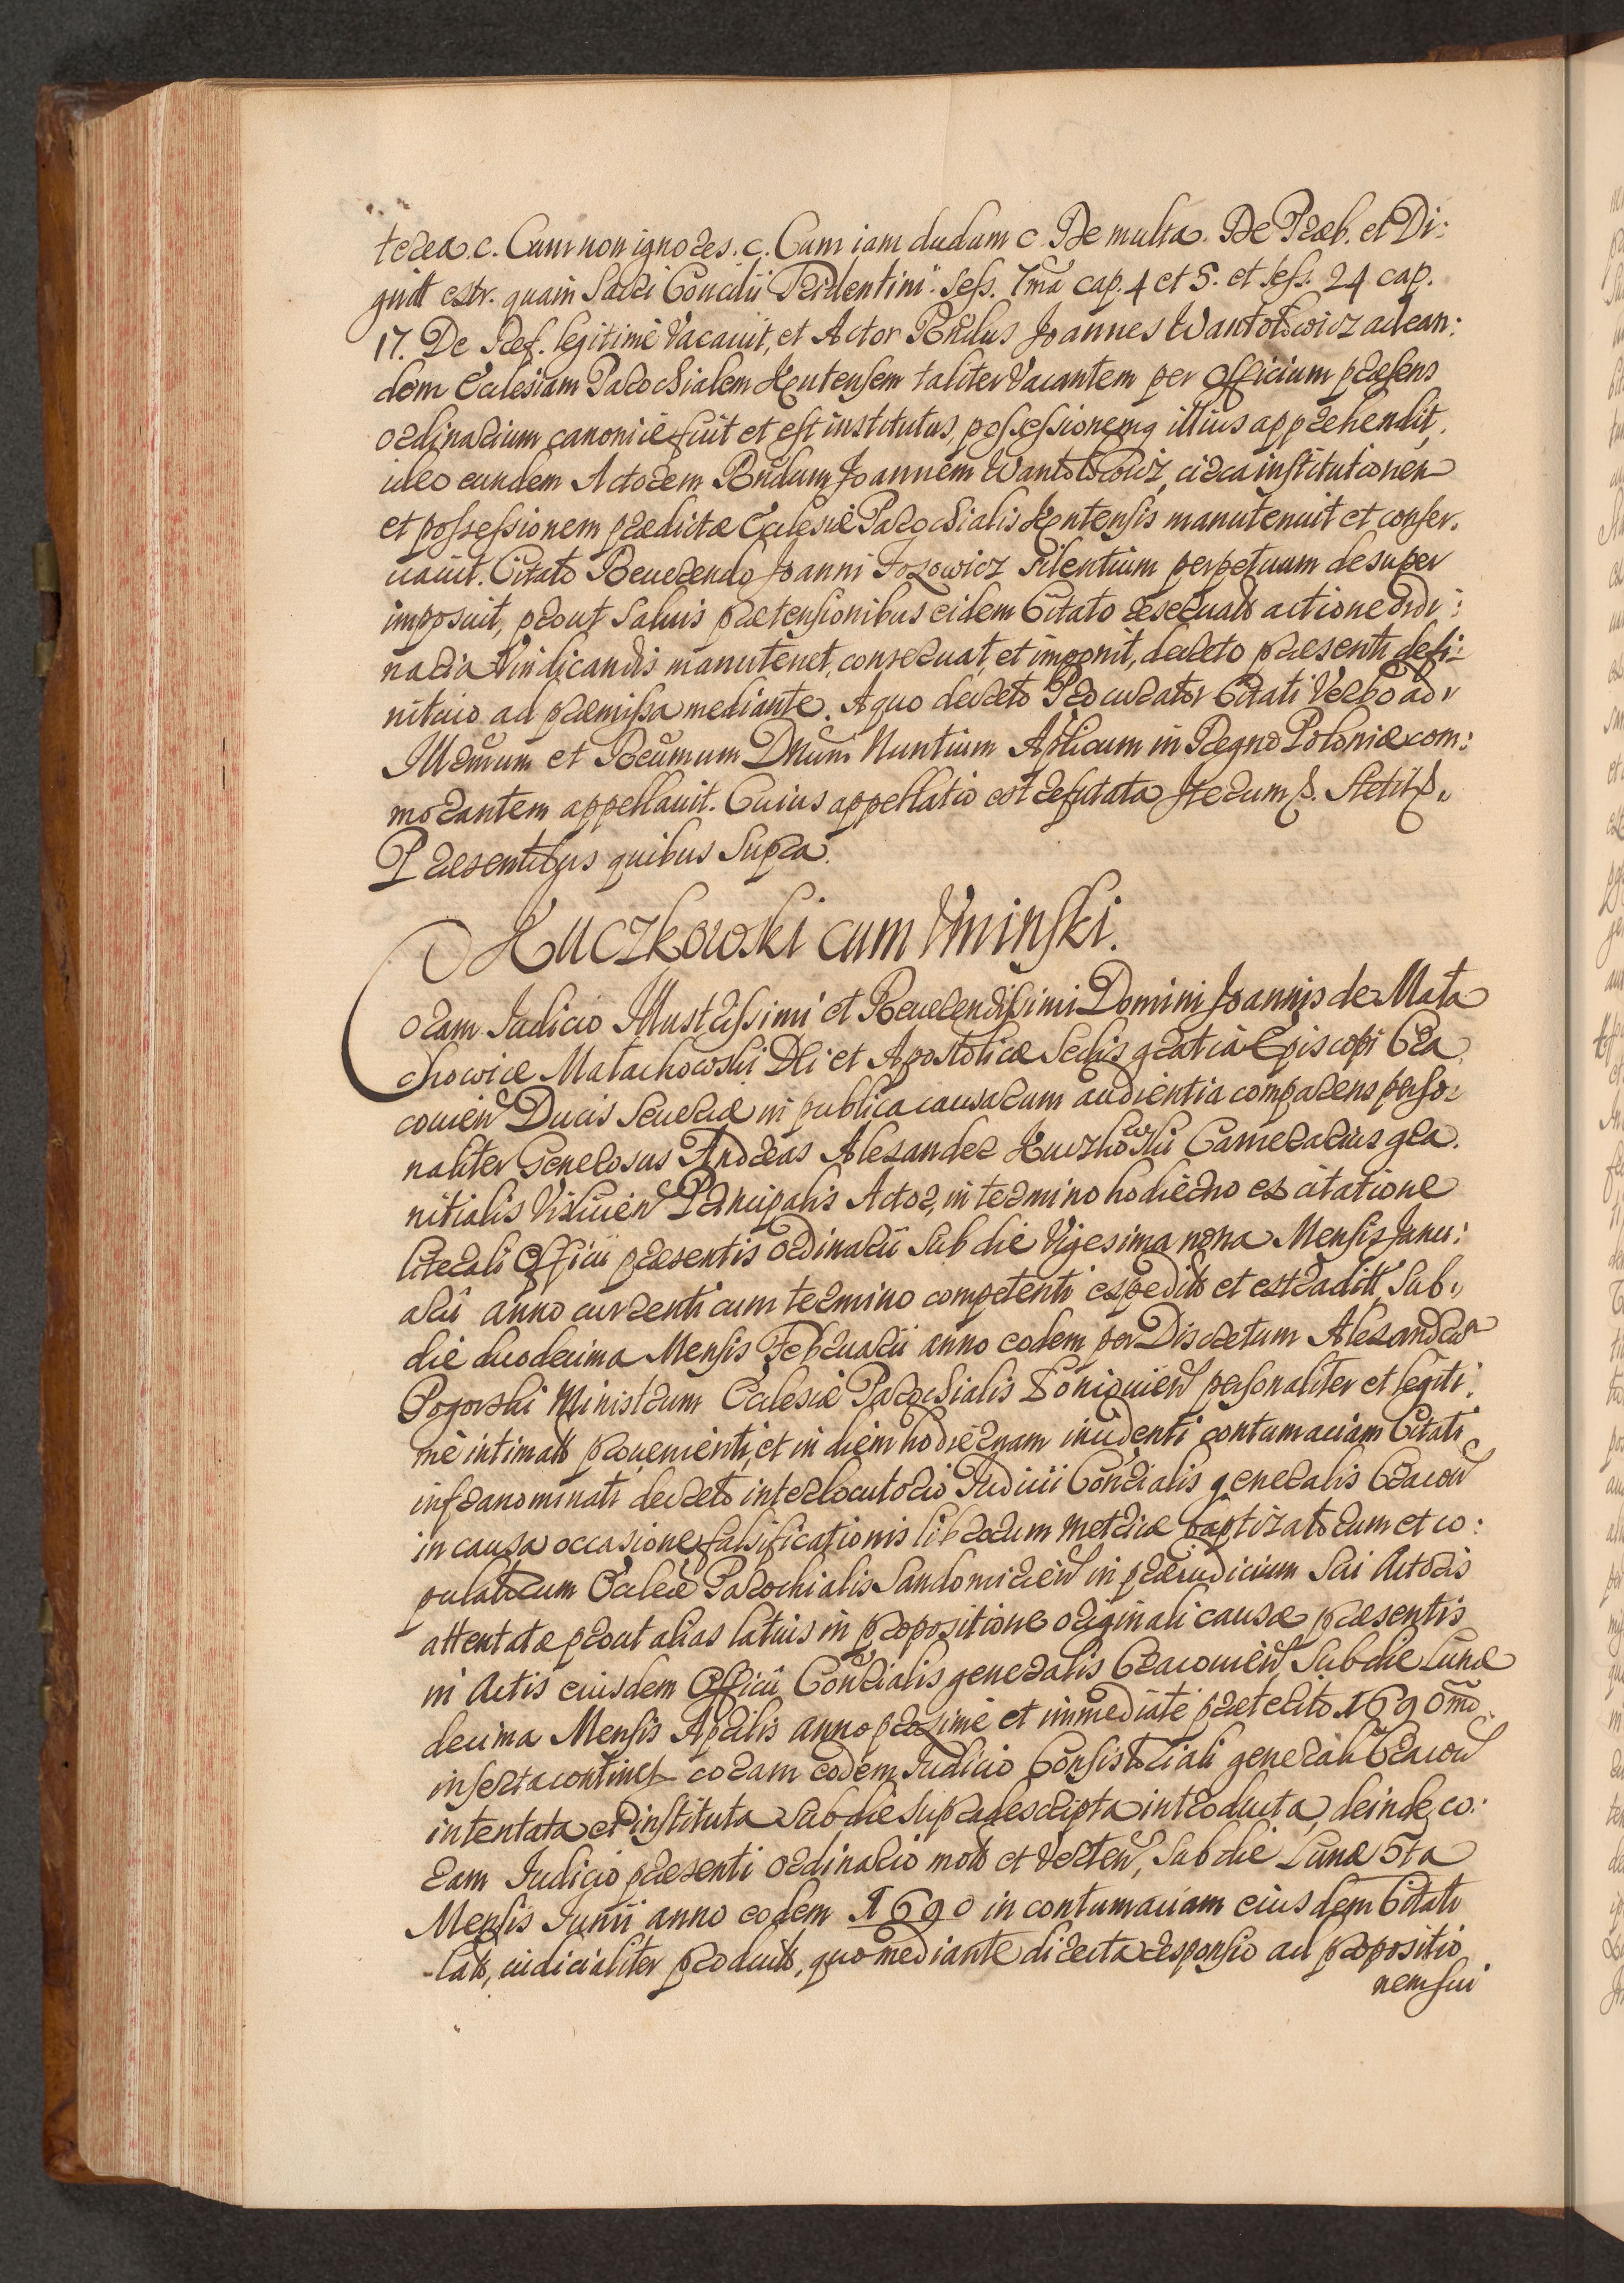 terea. c. Cum non ignores. c. Cum iam dudum c. De multa. De Præb. et Di:
gnitt extr. quam Sacri Concilii Tridentini. Sess. 7ma cap. 4 et 5. et sess. 24 cap.
17. De Ref. legitimè Vacauit, et Actor Rndus Joannes Wantolowicz ad ean:
dem Ecclesiam Parochialem Kentensem taliter Vacantem per Officium præsens
ordinarium canonicè fuit et est institutus, possessionemq illius apprehendit,
ideo eundem Actorem Rndum Joannem Wantolowicz, circa institutionem
et possessionem prædictæ Ecclesiæ Parochialis Kentensis manutenuit et conser.
uauit. Citato Reuerendo Joanni Jozowicz silentium perpetuum desuper
imposuit, prout saluis prætensionibus eidem Citato reseruatis actione ordi:
naria Vindicandis manutenet, conseruat, et imponit, decreto præsenti defi:
nitiuo ad præmissa mediante. A quo decreto Procurator Citati Verbo ad
Illrmum et Reumum Dnum Nuntium Aplicum in Regno Poloniæ com:
morantem appellauit. Cuius appellatio est refutata Iterum S. Stetit S.
Præsentibus quibus supra.
Kuczkowski cum Vminski.
Coram Iudicio Illustrissimi et Reuerendissimi Domini Joannis de Mała
chowice Małachowski Dei et Apostolicæ Sedis gratia Episcopi Cra
couien Ducis Seueriæ in publica causarum audientia comparens perso:
naliter Generosus Andreas Alexander Kuczkowski Camerarius gra.
nitialis Vislicien Principalis Actor, in termino hodierno ex citatione
literali Officii præsentis Ordinarii sub die Vigesima nona Mensis Janu:
arii anno currenti cum termino competenti expedit et extradit, sub
die duodecima Mensis Februarii anno eodem per Discretum Alexandrum
Pogorski Ministrum Ecclesiæ Parochialis Koniouien personaliter et legiti.
mè intimat proueniente, et in diem hodiernam incidenti contumaciam Citati
infranominati decreto interlocutorio Iudicii Consrialis generalis Cracou
in causa occasione falsificationis librorum metricæ baptizatorum et co:
pulatorum Ecclæ Parochialis Sandomirien in præiudicium sui Actoris
attentatæ prout alias latius in propositione originali causæ præsentis
in Actis eiusdem Officii Consrialis generalis Cracouien, sub die Lunæ
decima Mensis Aprilis anno proxime et immediatè præterito 1690mo
inserta continet coram eodem Iudicio Consistoriali generali Cracou
intentata et instituta sub die supradescripta introducta, deinde co:
ram Iudicio præsenti ordinario mot et verten, sub die Lunæ 5ta
Mensis Iunii anno eodem 1690 in contumaciam eiusdem Citati
lat, iudicialiter product, quo mediante directa responsio ad propositio
nem sui